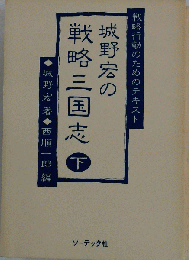 戦略行動のためのテキスト
城野宏の
戦略三国志
下
◆城野宏著◆西順一郎編
ソーテック社